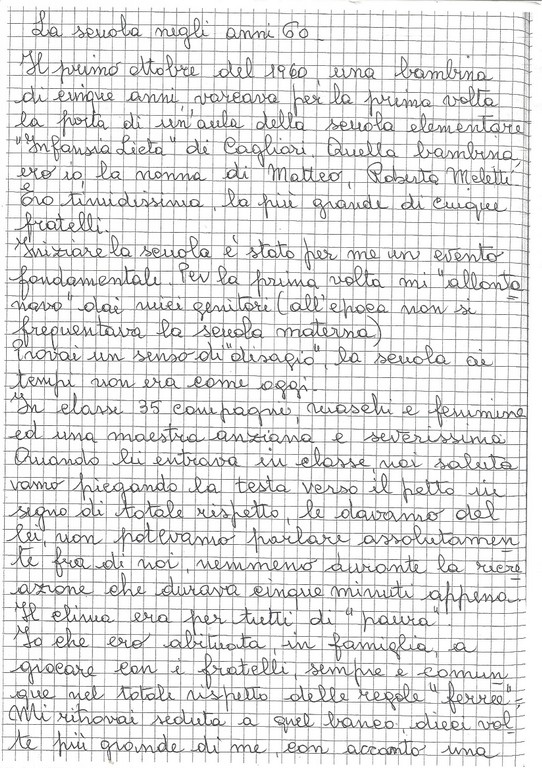 La scuola negli anni 60
Il primo ottobre del 1960, una bambina
di cinque anni, varcava per la prima volta
la porta di un'aula della scuola elementare
"Infanzia Lieta" di Cagliari. Quella bambina,
ero io, la nonna di Matteo, Roberta Meletti
Ero timidissima, la più grande di cinque
fratelli.
Iniziare la scuola è stato per me un evento
fondamentale. Per la prima volta mi "allonta
navo" dai miei genitori (all'epoca non si
frequentava la scuola materna)
Provai un senso di "disagio", la scuola ai
tempi non era come oggi.
In classe 35 compagni, maschi e femmine
ed una maestra anziana e severissima
Quando lei entrava in classe, noi saluta
vamo piegando la testa verso il petto in
segno di totale rispetto, le davamo del
lei, non potevamo parlare assolutamen
te fra di noi, nemmeno durante la ricre
azione che durava cinque minuti appena.
Il clima era per tutti di "paura"
Io che ero abituata, in famiglia, a
giocare con i fratelli, sempre e comun
que nel totale rispetto delle regole "ferree".
Mi ritrovai seduta a quel banco, dieci vol
te più grande di me, con accanto una